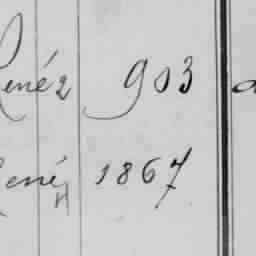 René 2 903
René 1867